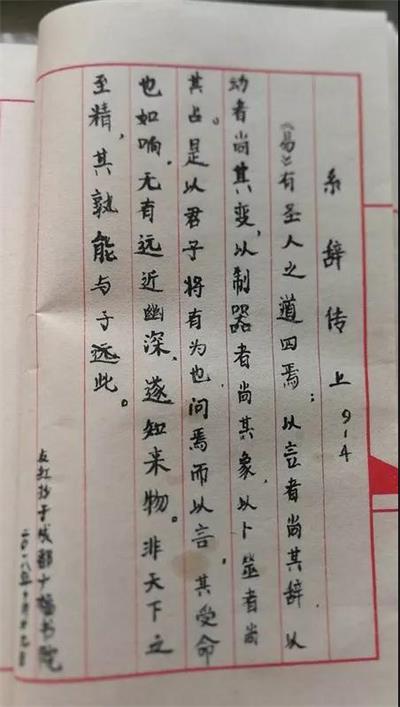 系辞传上 9-4
《易》有圣人之道四焉：以言者尚其辞，以
动者尚其变，以制器者尚其象，以卜筮者尚
其占。是以君子将有为也，问焉而以言，其受命
也如响，无有远近幽深，遂知来物。非天下之
至精，其孰能与于此。
红抄于成都十书院
二〇一八年十月十九日